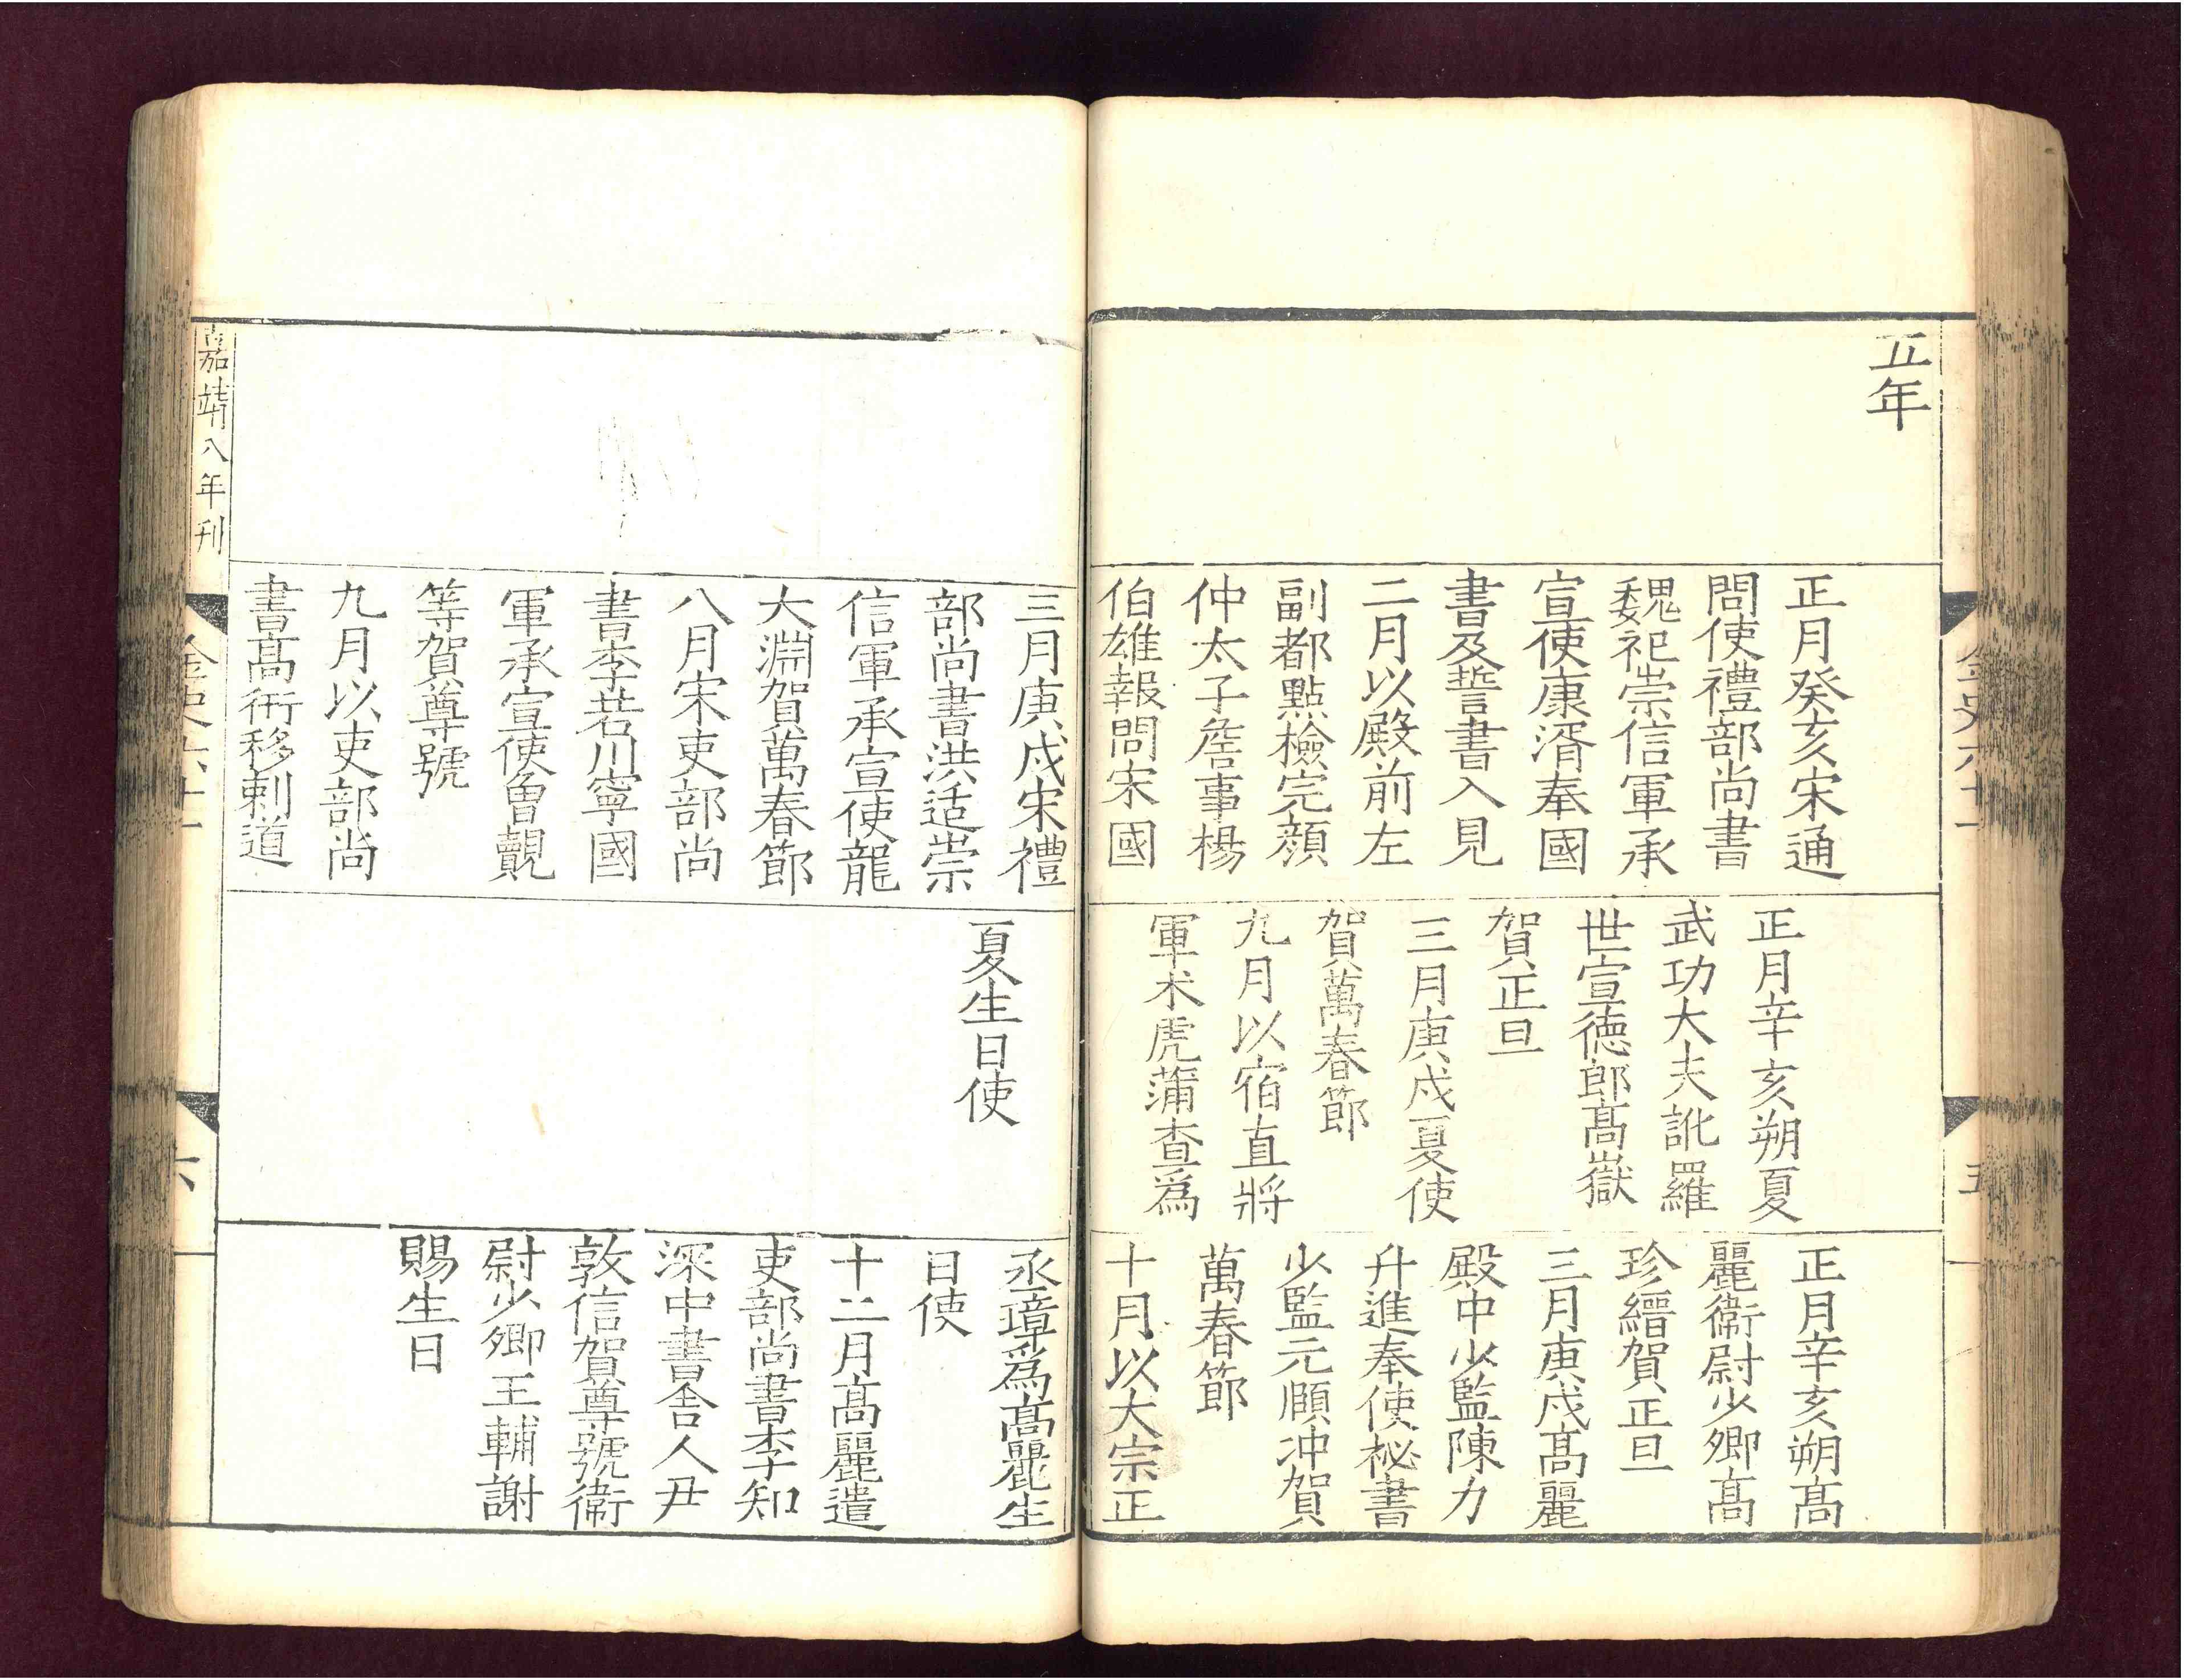 金史六十一
五
五年
正月癸亥宋通
問使禮部尚書
魏祀崇信軍承
宣使康湑奉國
書及誓書入見
二月以殿前左
副都點檢完顔
仲太子詹事楊
伯雄報問宋國
正月辛亥朔夏
武功大夫訛羅
世宣德郎高嶽
賀正旦
三月庚戍夏使
賀萬春節
九月以宿直將
軍术虎蒲查爲
正月辛亥朔高
麗衛尉少卿高
珍縉賀正旦
三月庚戍高麗
殿中少監陳力
升進奉使祕書
少監元願冲賀
萬春節
十月以大宗正
三月庚戍宋禮
部尚書洪适崇
信軍承宣使龍
大淵賀萬春節
八月宋吏部尚
書李若川寧國
軍承宣使曾覿
等賀尊號
九月以吏部尚
書高衎移剌道
夏生日使
丞璋爲高麗生
日使
十二月高麗遣
吏部尚書李知
深中書舍人尹
敦信賀尊號衛
尉少卿王輔謝
賜生日
嘉靖八年刊
金史六十一
六